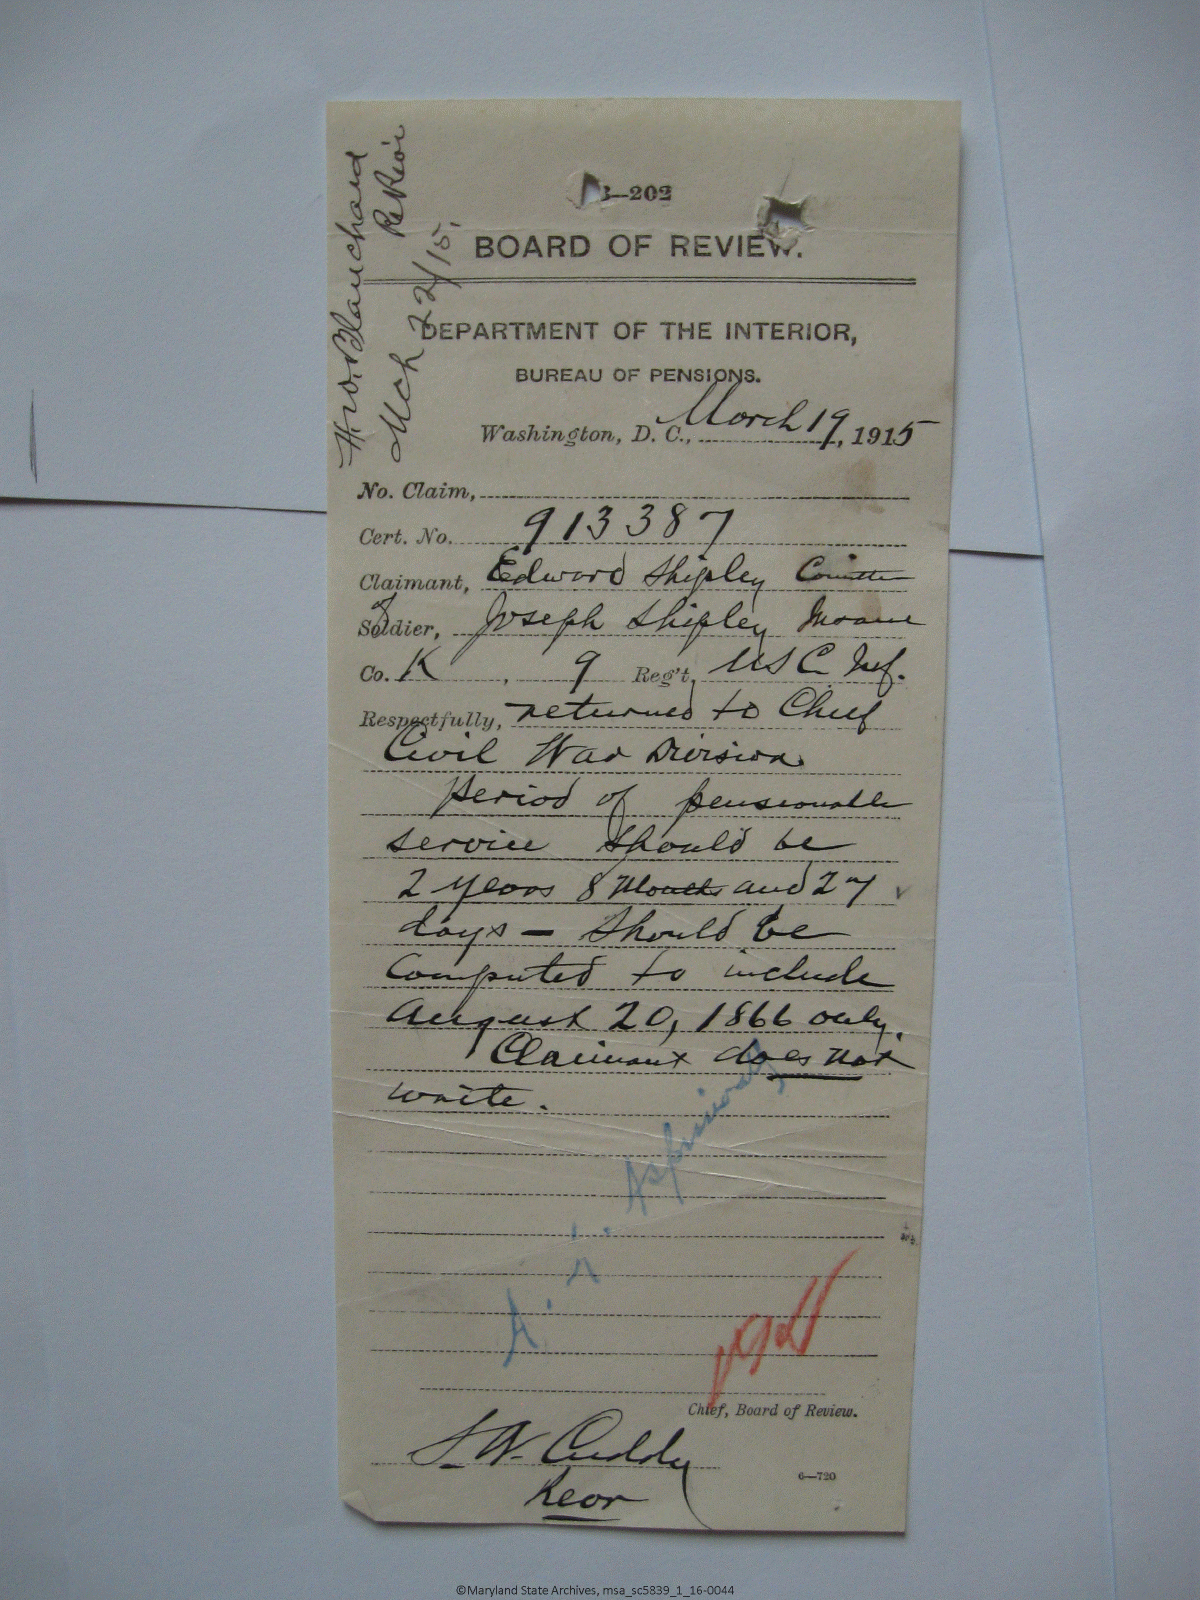 H. W. Blanchard
ReRev'r
Mch 22/15.
3—202
BOARD OF REVIEW.
DEPARTMENT OF THE INTERIOR,
BUREAU OF PENSIONS.
Washington, D. C., March 19, 1915
No. Claim,
Cert. No. 913387
Claimant, Edward Shipley Comittee
of
Soldier, Joseph Shipley Insane
Co. K, 9 Reg't, USC Inf.
Respectfully, returned to Chief
Civil War Division
Period of pensionable
service should be
2 years 8 Months and 27
days — should be
computed to include
August 20, 1866 only.
Claimant does not
write.
Chief, Board of Review.
Cuddy
Revr
6—720
©Maryland State Archives, msa_sc5839_1_16-0044